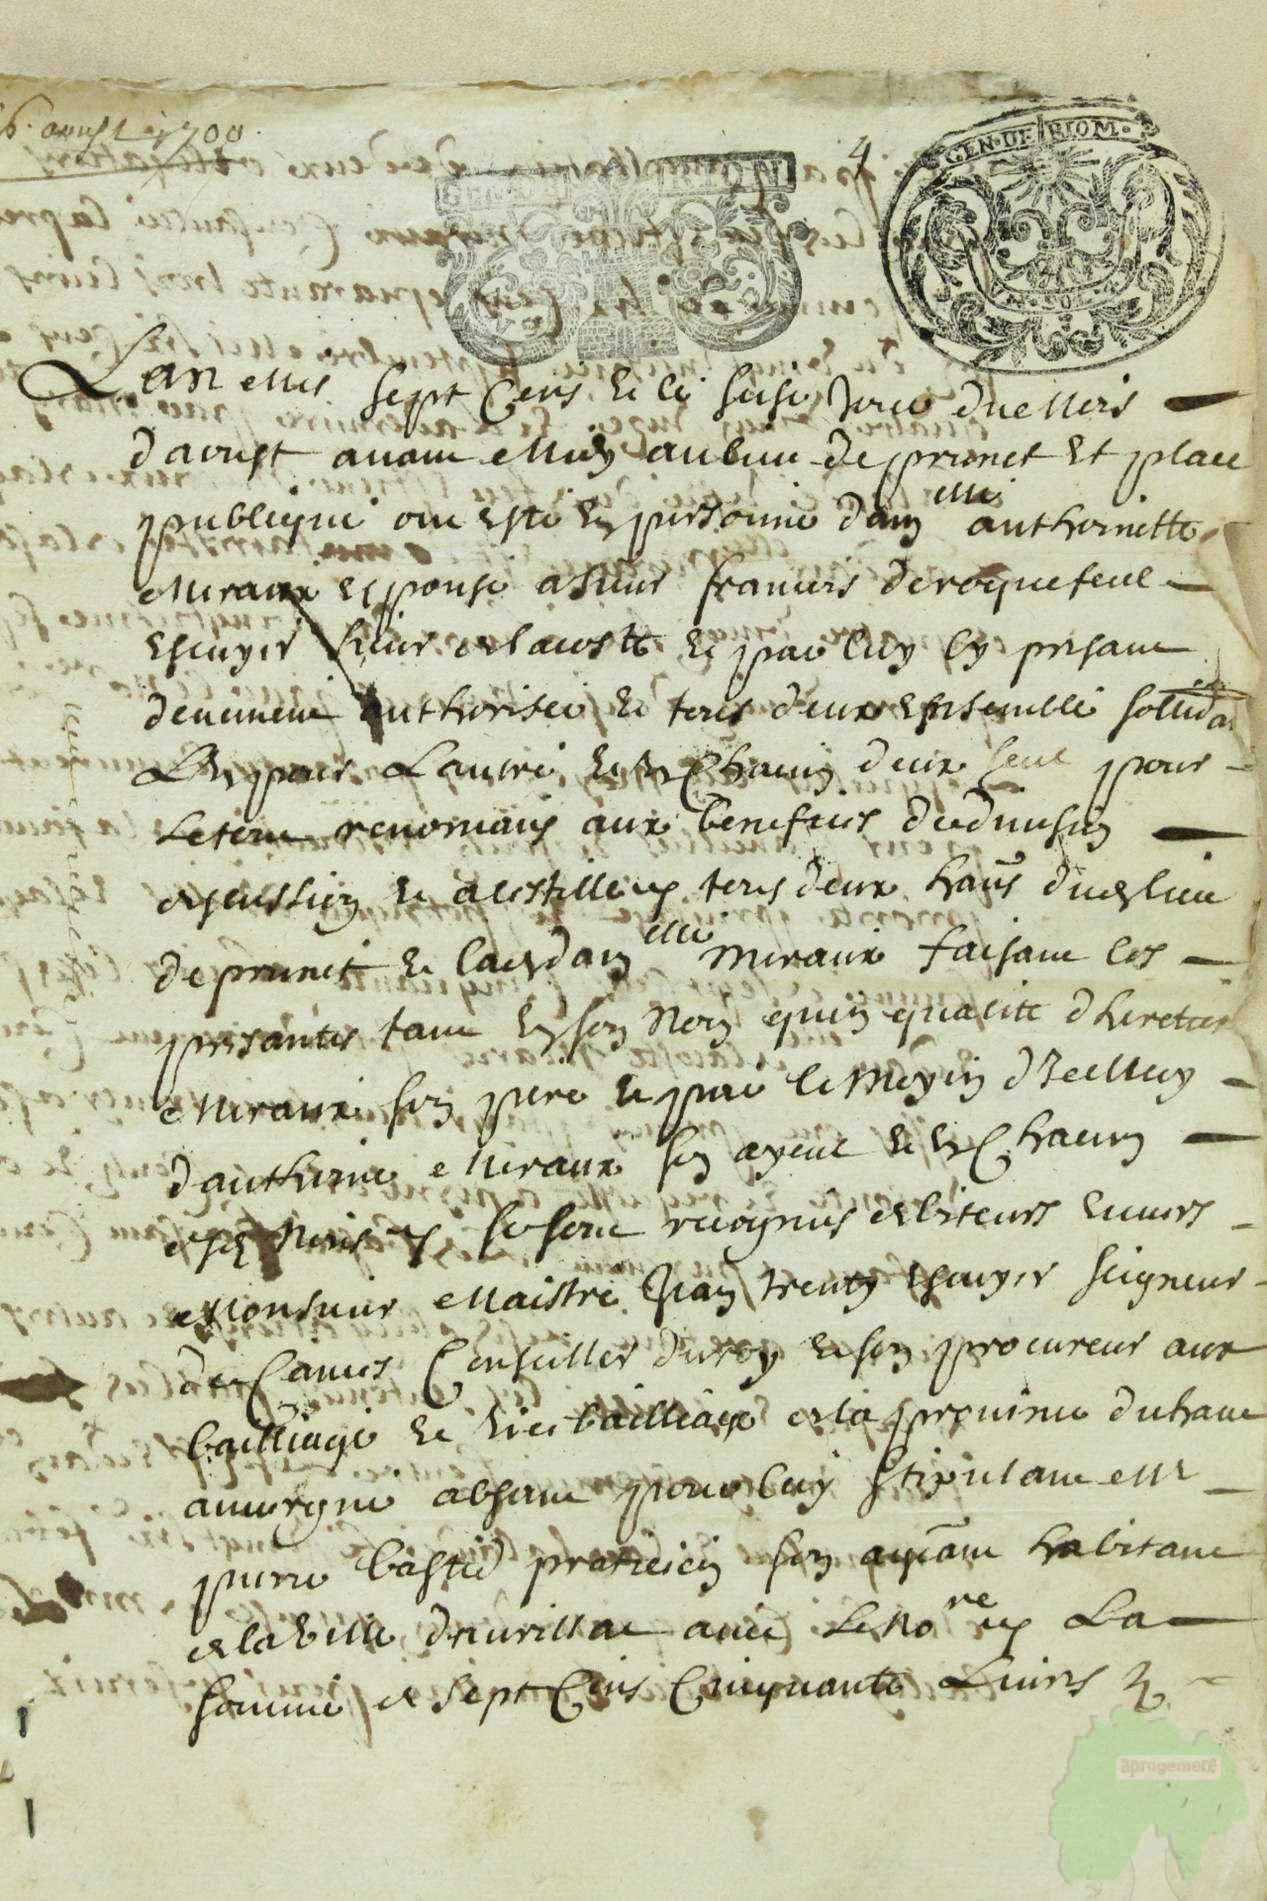 16 aoust 1700
4
GEN. DE RIOM.
L'an mil sept cens et le seise jour du mois
d'aoust avant midy au lieu de prunet et place
publique ont esté en personne dam elle anthoinette
Meraux espouse a sieur francois de roquefeul
escuyer sieur de lacoste et par luy cy presant
deuement authorisée et tous deux ensemble sollidai
L'un pour L'autre et un chacun deux seul pour
Le tout renoncans aux benefices de divusion
discussion et tous deux hans dud lieu
de prunet et lad dam elle Meraux faisant les
presantes tant en son nom qu'en qualite d'heretiere
Meraux son pere et par le moyen d'Icelluy
d'anthoine Meraux son ayeul et un chacun
desd noms se sont recognus debiteurs envers
Monsieur Maistre Jean trenty escuyer seigneur
de Canies Conseiller du roy et son procureur aux
bailliage et de la province du haut
auvergne absent pour luy stipulant Mr
pierre bastid praticien son ageant habitant
de la ville d'aurillac avec Le No re La
somme de sept Cens Cinquante Livres
aprogemere